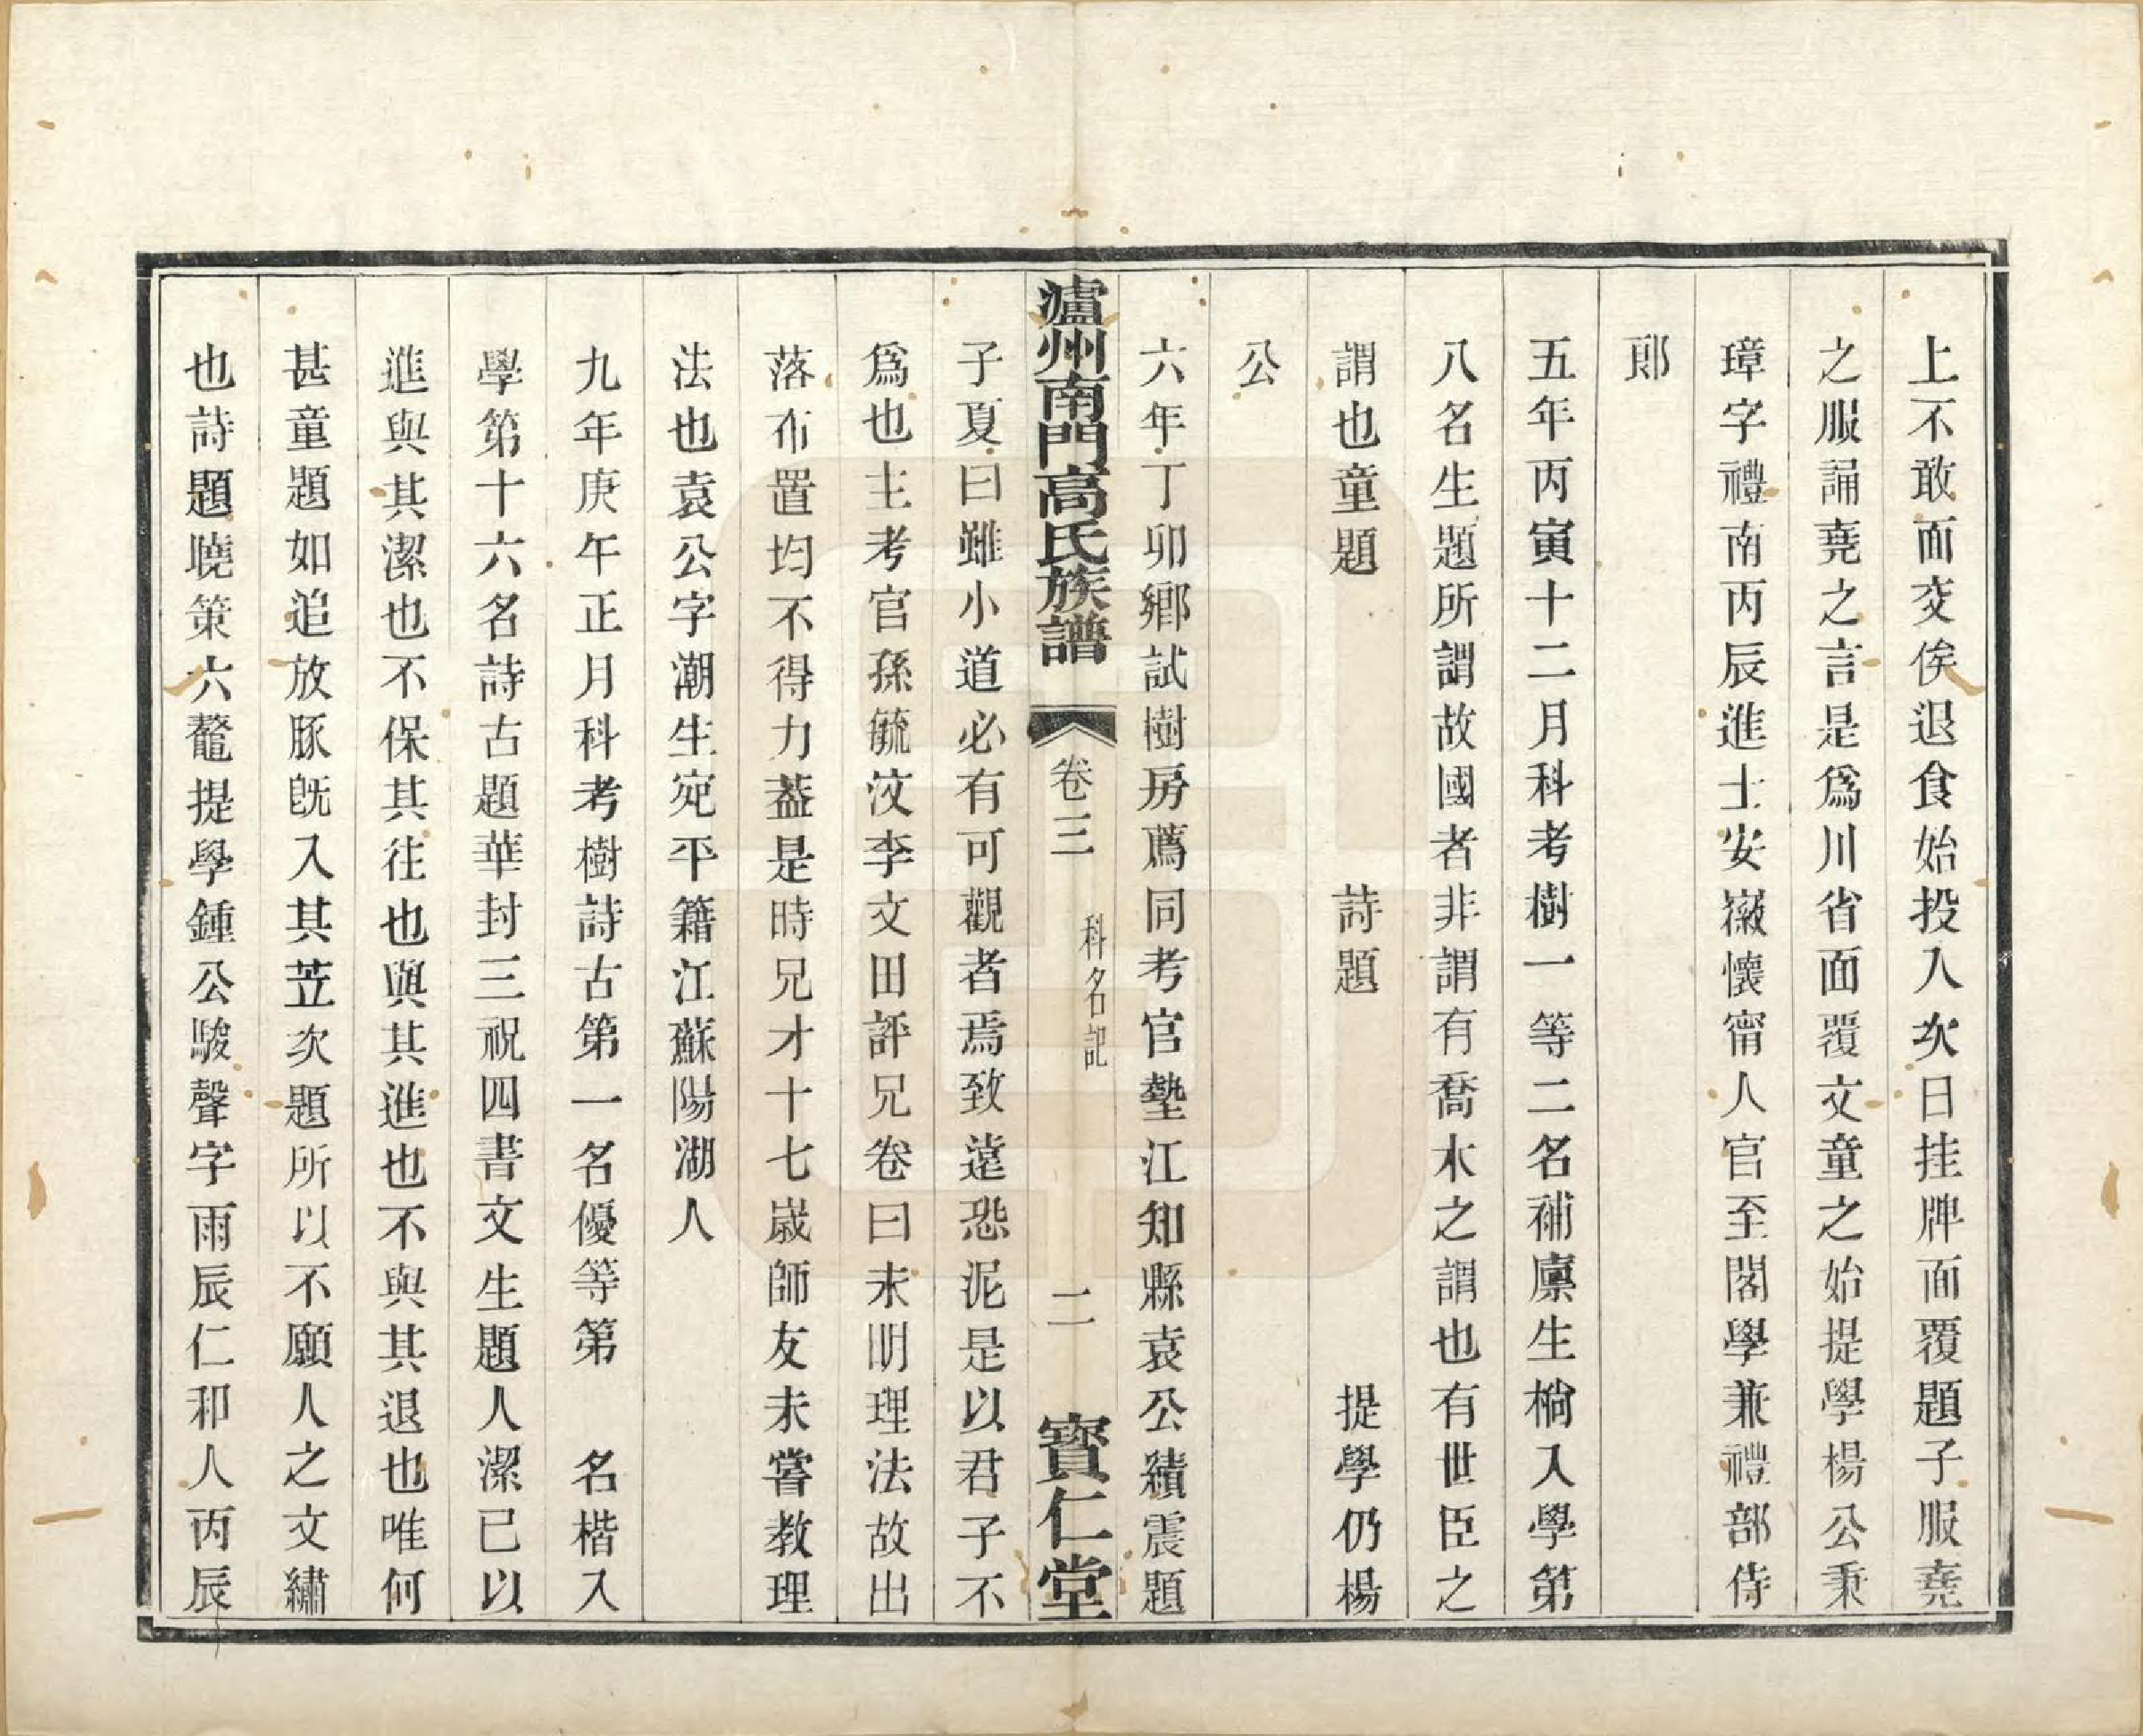 上不敢面交俟退食始投入次日挂牌面覆題子服堯
之服誦堯之言是爲川省面覆文童之始提學楊公秉
璋字禮南丙辰進士安徽懷甯人官至閣學兼禮部侍
郎
五年丙寅十二月科考樹一等二名補廩生楠入學第
八名生題所謂故國者非謂有喬木之謂也有世臣之
謂也童題　　　　　詩題　　　　　　提學仍楊
公
六年丁卯鄉試樹房薦同考官墊江知縣袁公績震題
瀘州南門高氏族譜　卷三　科名記　二　寶仁堂
子夏曰雖小道必有可觀者焉致遠恐泥是以君子不
爲也主考官孫毓汶李文田評兄卷曰未明理法故出
落布置均不得力蓋是時兄才十七歲師友未嘗教理
法也袁公字潮生宛平籍江蘇陽湖人
九年庚午正月科考樹詩古第一名優等第　名楷入
學第十六名詩古題華封三祝四書文生題人潔已以
進與其潔也不保其往也與其進也不與其退也唯何
甚童題如追放豚旣入其苙次題所以不願人之文繡
也詩題曉策六鼇提學鍾公駿聲字雨辰仁和人丙辰